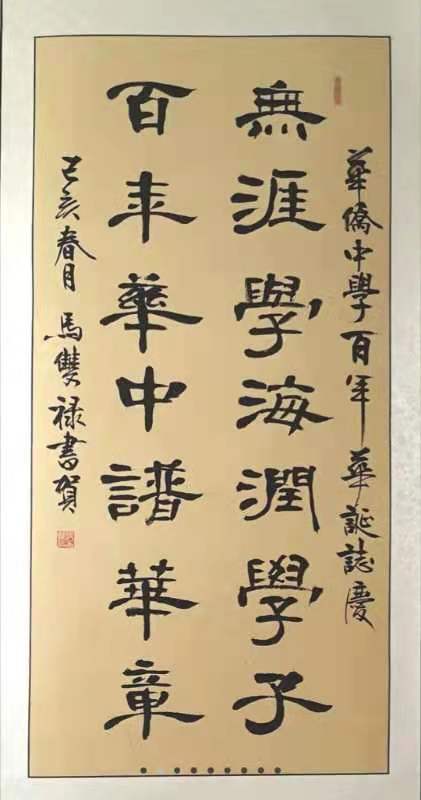 華僑中學百年華誕誌慶
無涯學海潤學子
百年華中譜華章
己亥春月馬雙祿書賀